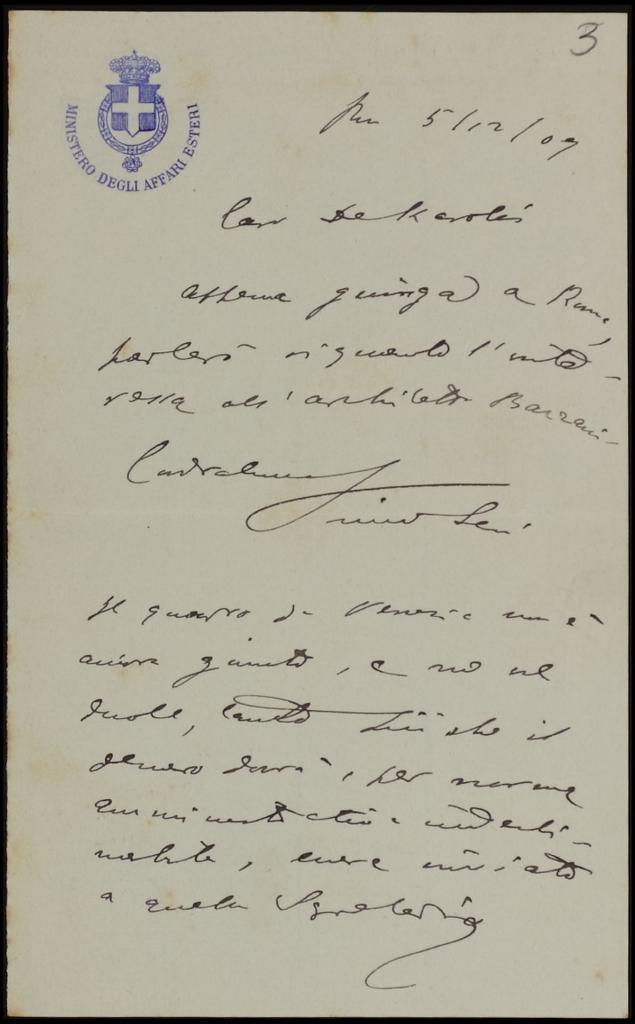 3
MINISTERO DEGLI AFFARI ESTERI
5/12/09
Caro De Karolis
appena giunga a Roma,
parlerò riguardo l'inte-
ressa all'architetto Bazzani
Cordialmente
Il quadro di Venezia non è
ancora giunto, e me ne
duole, tanto più che il
denaro dovrà, per norma
amministrativa indecli-
nabile, essere inviato
a quella Segreteria